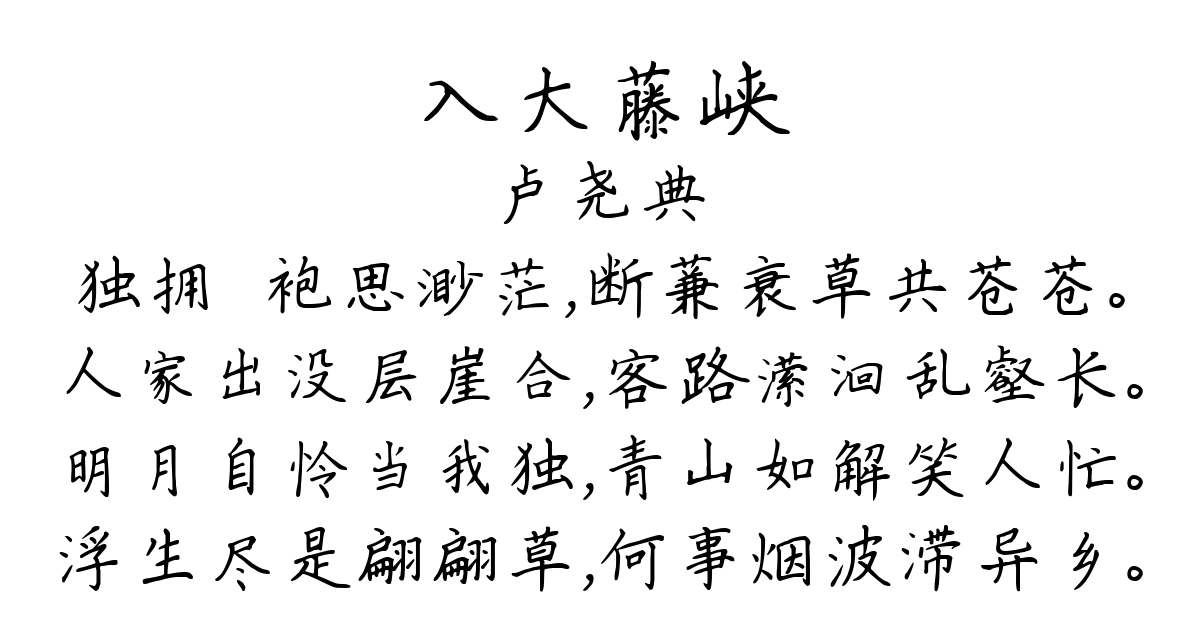 入大藤峡
卢尧典
独拥 袍思渺茫,断蒹衰草共苍苍。
人家出没层崖合,客路潆洄乱壑长。
明月自怜当我独,青山如解笑人忙。
浮生尽是翩翩草,何事烟波滞异乡。